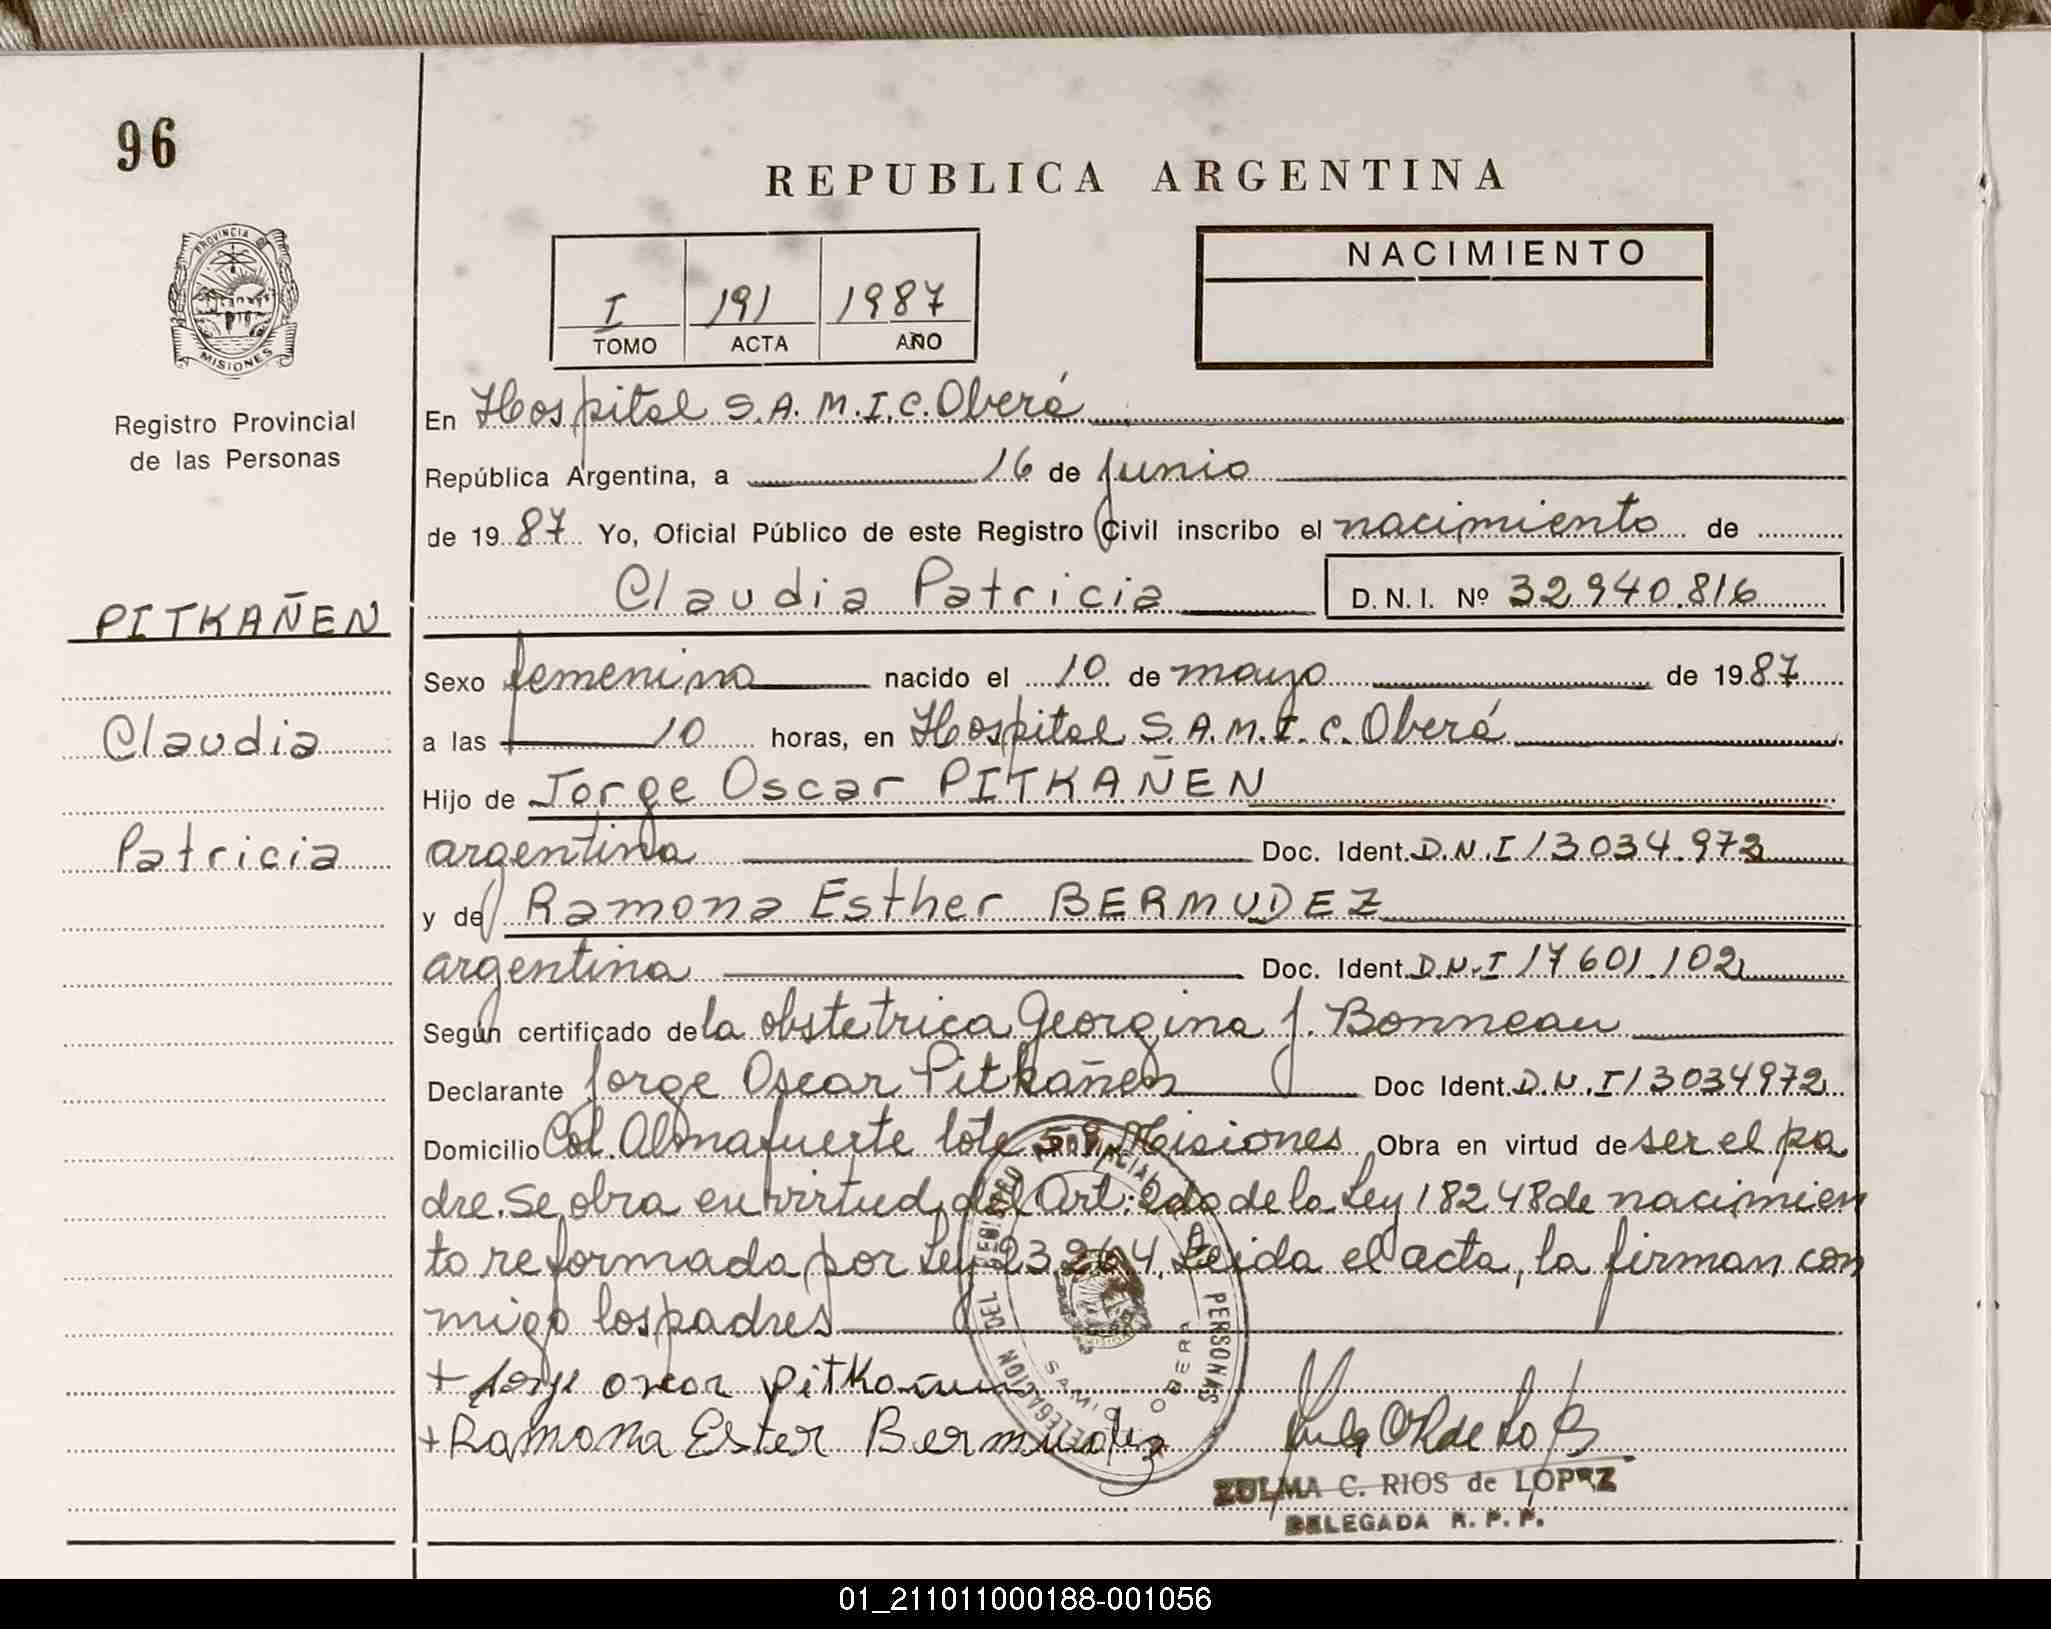 96
REPUBLICA ARGENTINA
PROVINCIA DE
MISIONES
Registro Provincial
de las Personas
I 191 1987
TOMO ACTA AÑO
NACIMIENTO
En Hospital S.A.M.I.C. Oberá
República Argentina, a 16 de junio
de 1987 Yo, Oficial Público de este Registro Civil inscribo el nacimiento de
Claudia Patricia D.N.I. Nº 32.940.816
PITKAÑEN
Claudia
Patricia
Sexo femenino nacido el 10 de mayo de 1987
a las 10 horas, en Hospital S.A.M.I.C. Oberá
Hijo de Jorge Oscar PITKAÑEN
argentina Doc. Ident. D.N.I 13034.972
y de Ramona Esther BERMUDEZ
argentina Doc. Ident. D.N.I 17601.102
Según certificado de la obstetrica Georgina J. Bonneau
Declarante Jorge Oscar Pitkañen Doc Ident. D.N.I 13034972
Domicilio Col. Almafuerte lote 59 Misiones Obra en virtud de ser el pa
dre. Se obra en virtud del Art. 2do de la Ley 18248 de nacimien
to reformada por Ley 23.264, Leida el acta, la firman con
migo los padres
+ Jorge oscar pitkañen
+ Ramona Ester Bermudez
DELEGACION DEL REGISTRO PROVINCIAL DE PERSONAS
SAMIC OBERA
ZULMA C. RIOS de LOPEZ
DELEGADA R. P. P.
01_211011000188-001056